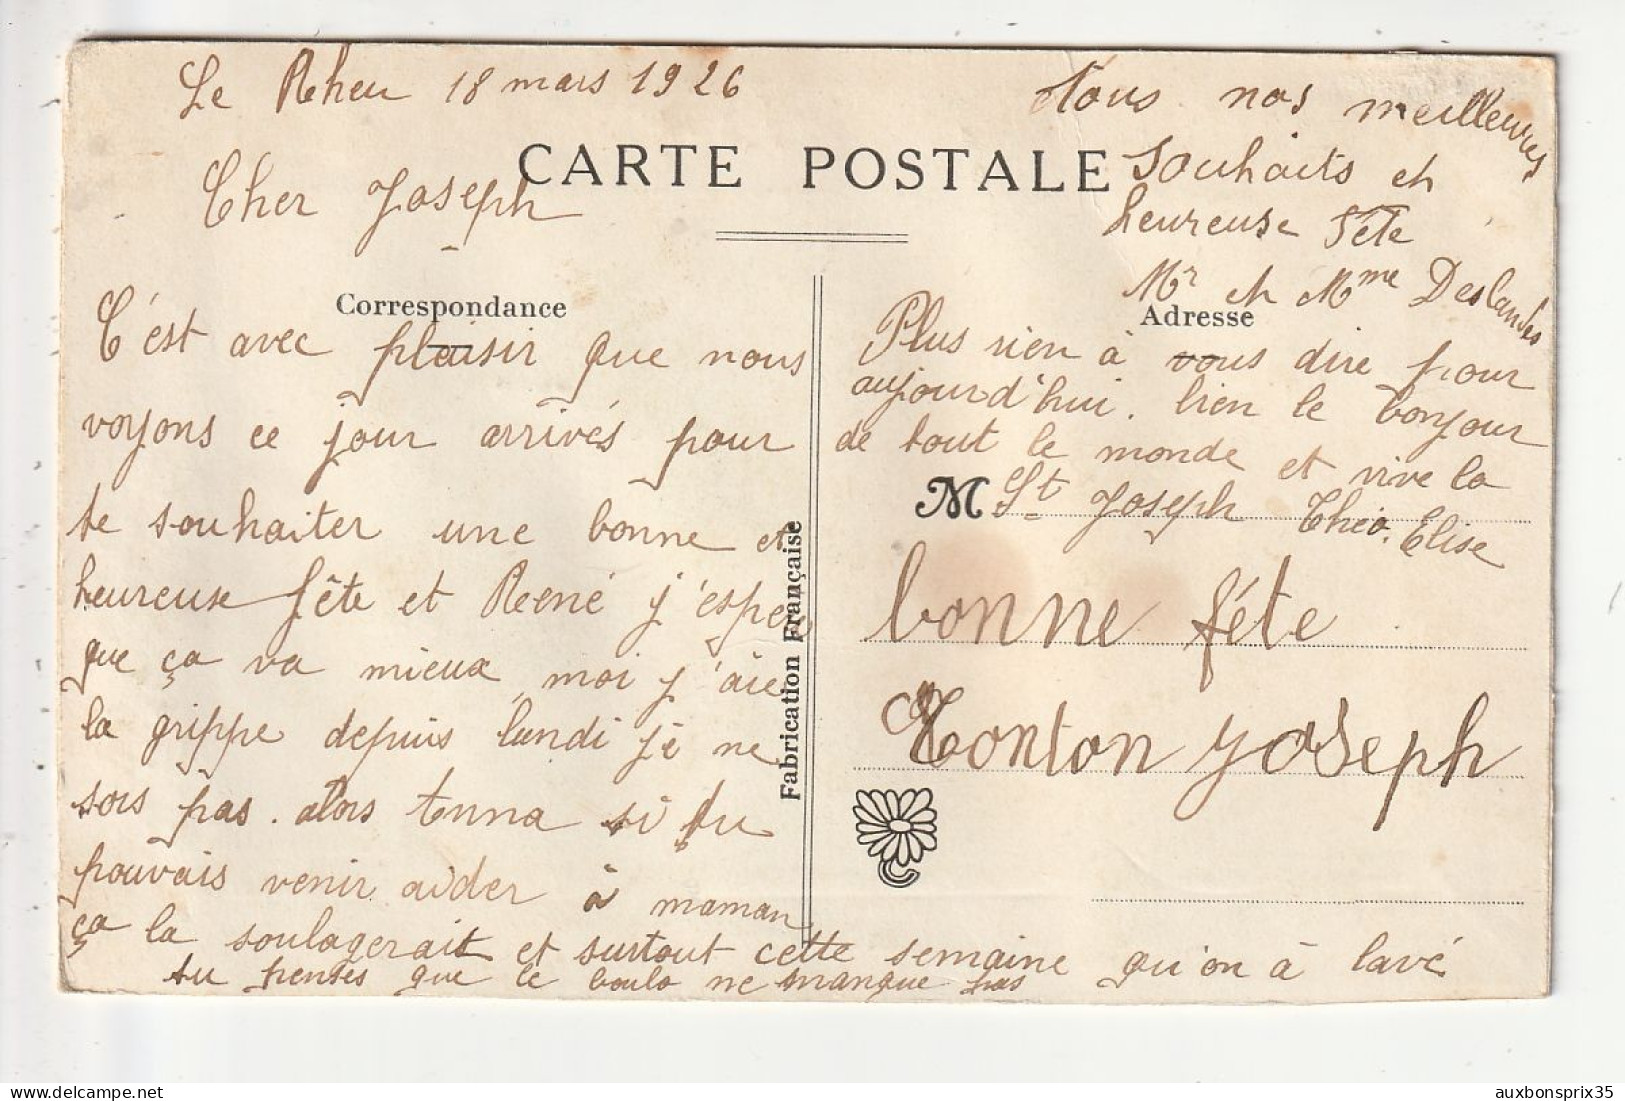 Le Rheu 18 mars 1926
CARTE POSTALE
Cher Joseph
Correspondance
C'est avec plaisir que nous
voyons ce jour arrivés pour
te souhaiter une bonne et
heureuse fête et René j'esper
que ça va mieux moi j'aie
la grippe depuis lundi je ne
sors pas. alors si tu
pouvais venir aider à maman
ça la soulagerait et surtout cette semaine qu'on à lavé
tu penses que le boulo ne manque pas
Fabrication Française
Tous nos meilleures
souhaits et
heureuse fête
Mr et Mme Deslandes
Adresse
Plus rien à vous dire pour
aujourd'hui. bien le bonjour
de tout le monde et vive la
M St Joseph Théo. Elise
bonne féte
Tonton Joseph
delcampe.net
auxbonsprix35